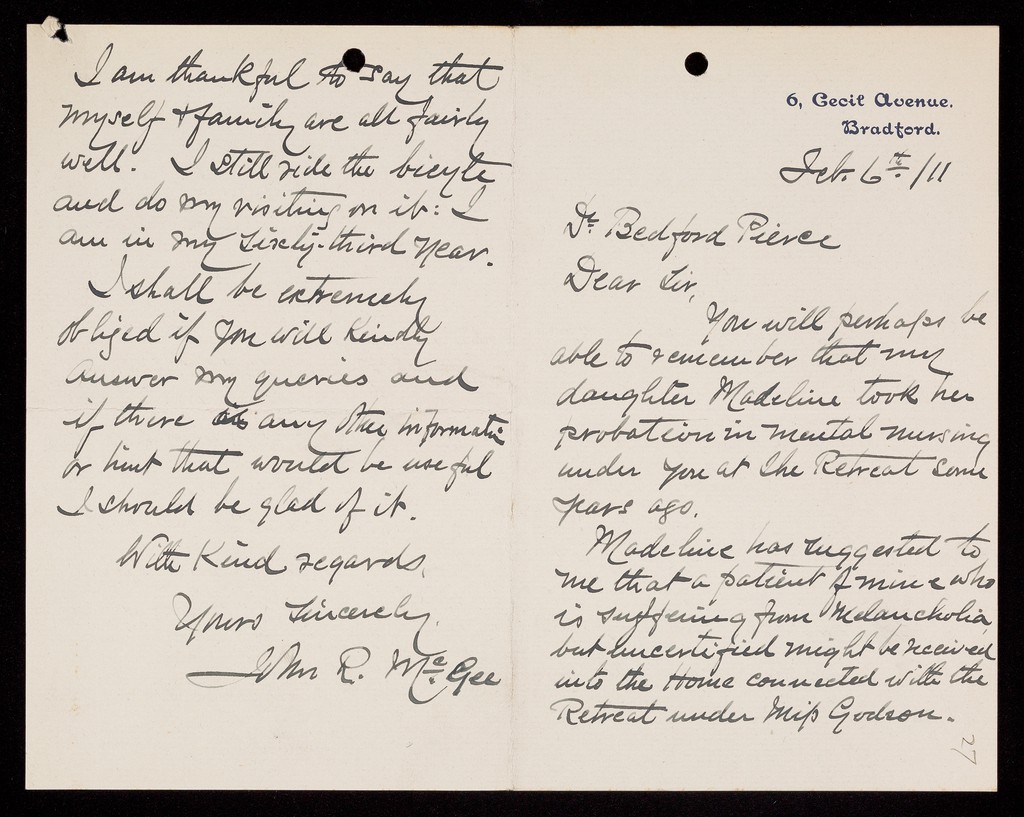 6, Cecil Avenue.
Bradford.
Feb. 6th./11
Dr. Bedford Pierce
Dear Sir,
You will perhaps be
able to remember that my
daughter Madeline took her
probation in mental nursing
under you at the Retreat some
years ago.
Madeline has suggested to
me that a patient of mine who
is suffering from Melancholia
but uncertified might be received
into the Home connected with the
Retreat under Miss Godson.
27
I am thankful to say that
myself & family are all fairly
well. I still ride the bicycle
and do my visiting on it: I
am in my sixty-third year.
I shall be extremely
obliged if you will kindly
answer my queries and
if there is any other informatn
or hint that would be useful
I should be glad of it.
With kind regards,
Yours sincerely,
John R. McGee